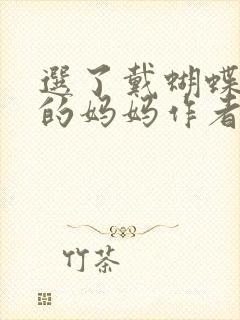 選了戴蝴蝶
的妈妈作者
竹茶